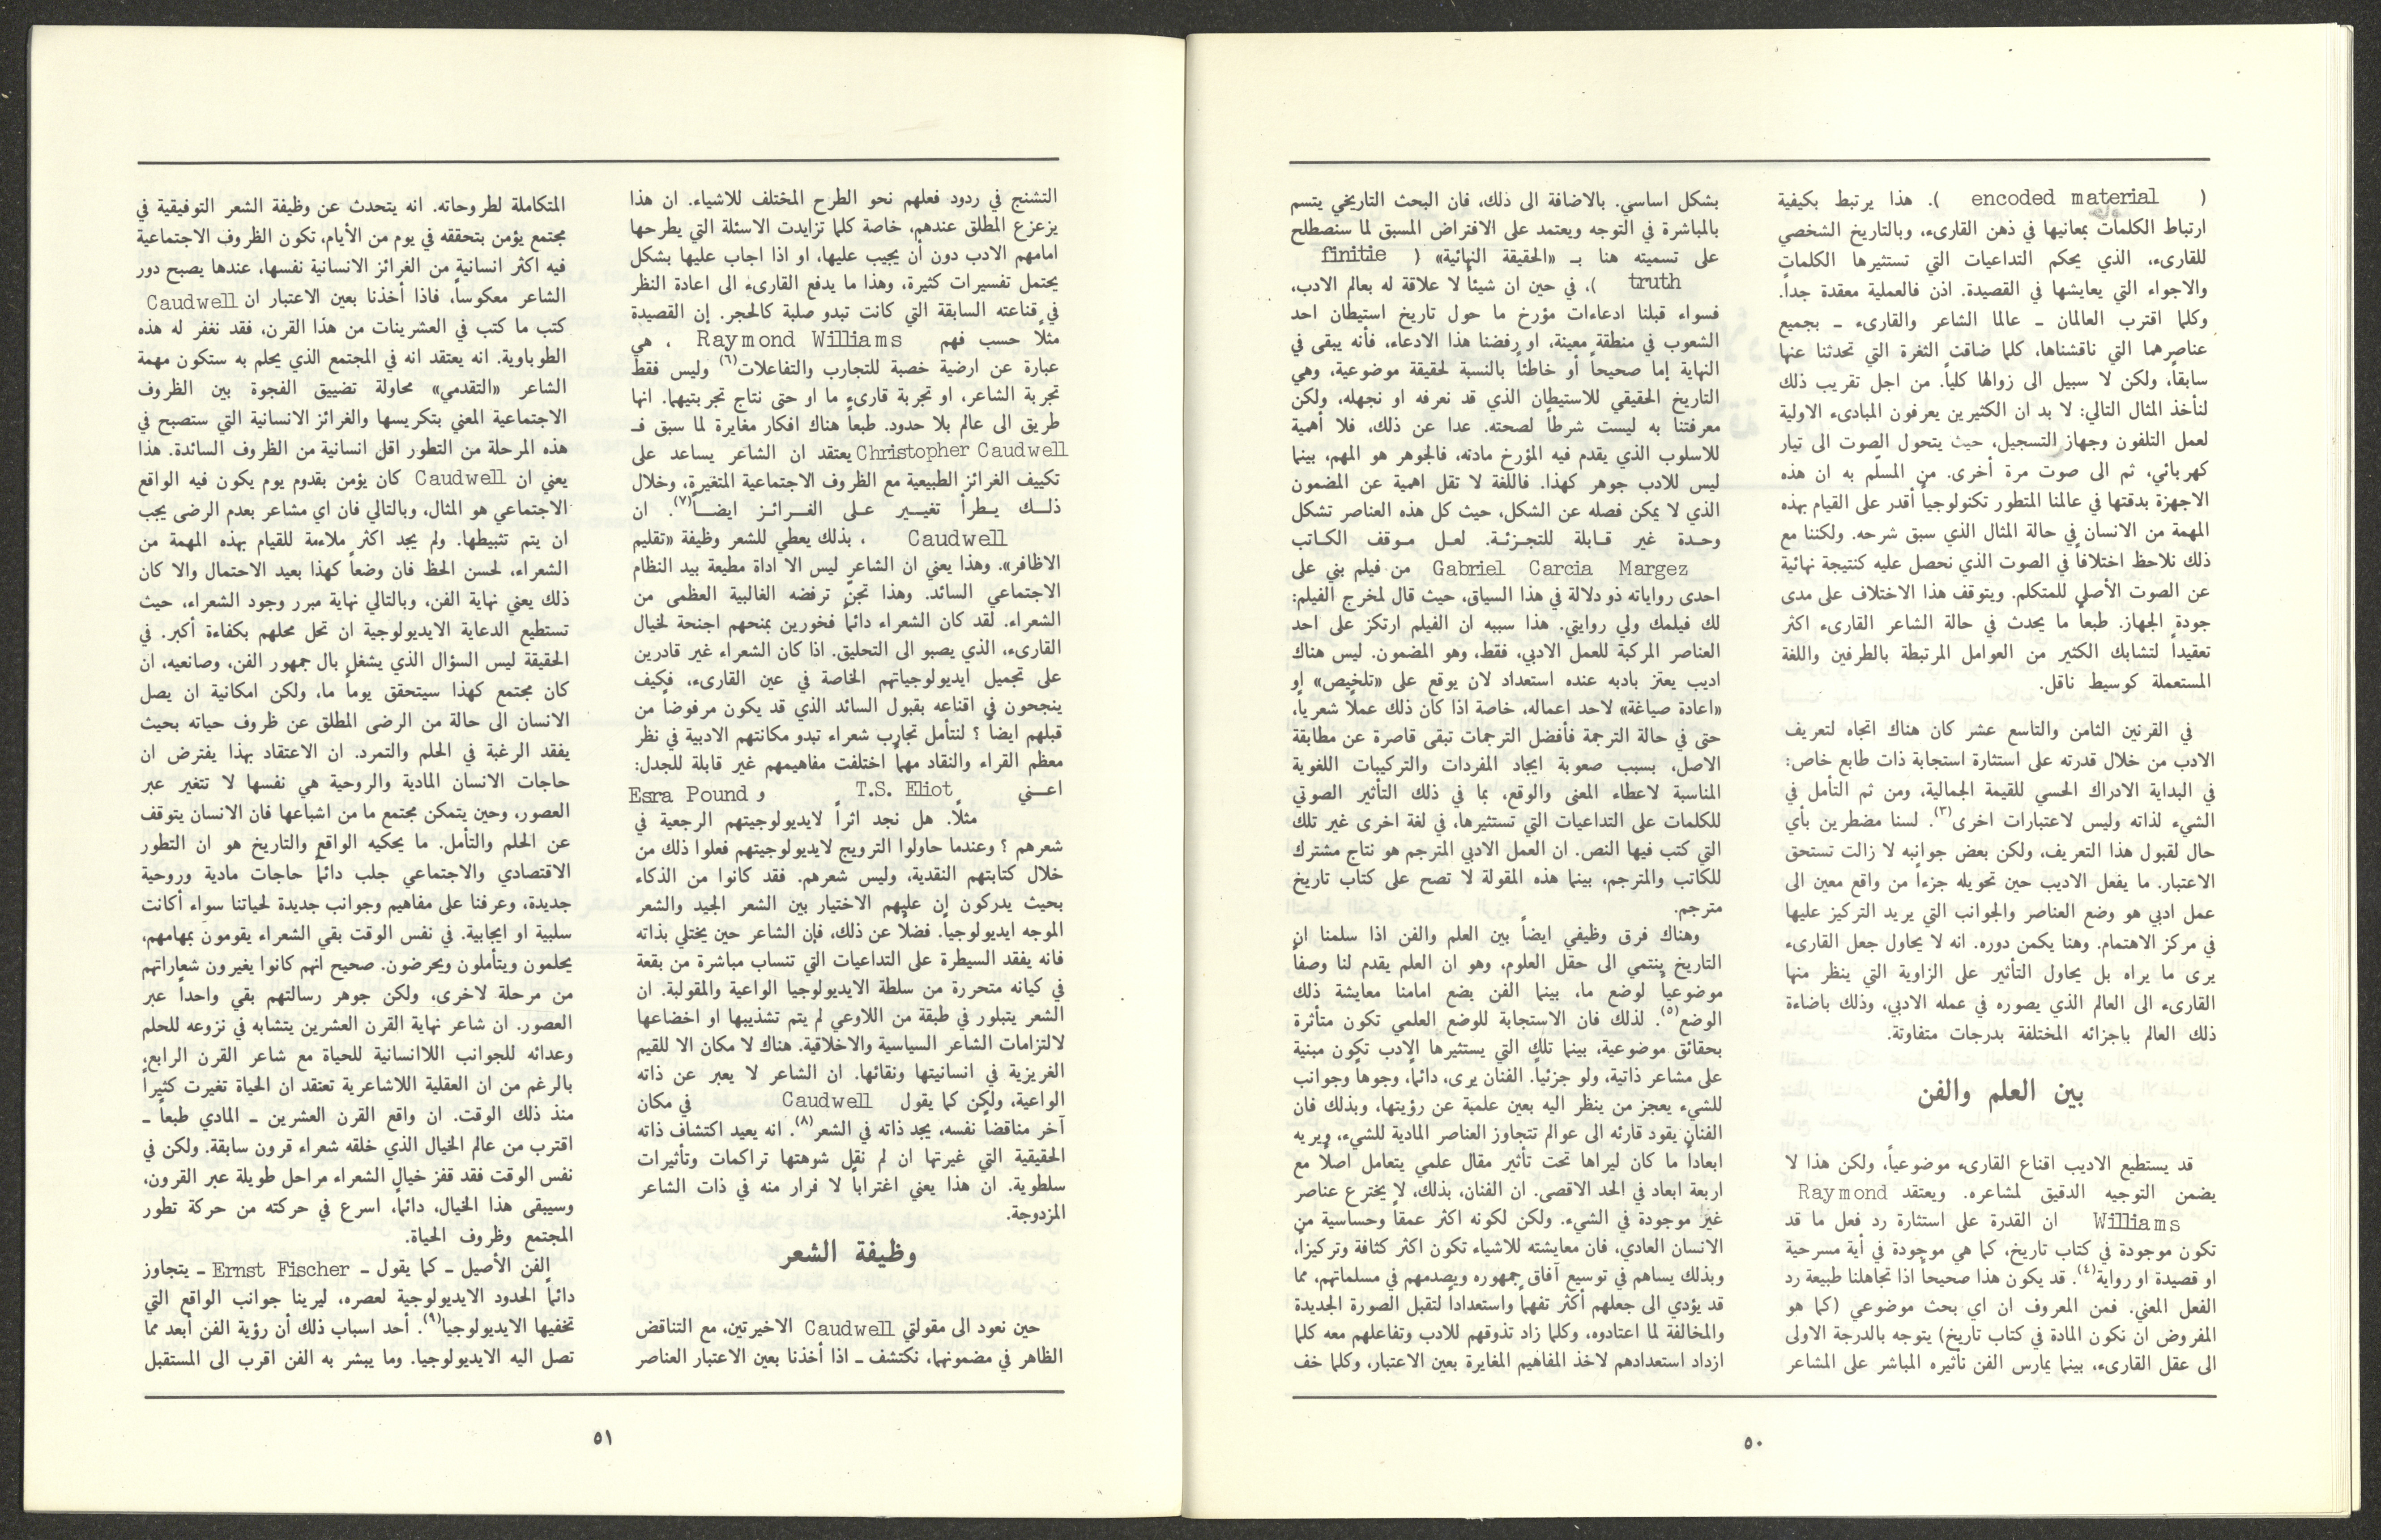 ( encoded material ). هذا يرتبط بكيفية
ارتباط الكلمات بمعانيها في ذهن القارىء، وبالتاريخ الشخصي
للقارىء، الذي يحكم التداعيات التي تستثيرها الكلمات
والاجواء التي يعايشها في القصيدة. اذن فالعملية معقدة جداً.
وكلما اقترب العالمان ـ عالما الشاعر والقارىء ـ بجميع
عناصرهما التي ناقشناها، كلما ضاقت الثغرة التي تحدثنا عنها
سابقاً، ولكن لا سبيل الى زوالها كلياً. من اجل تقريب ذلك
لنأخذ المثال التالي: لا بد ان الكثيرين يعرفون المبادىء الاولية
لعمل التلفون وجهاز التسجيل، حيث يتحول الصوت الى تيار
كهربائي، ثم الى صوت مرة أخرى. من المسلّم به ان هذه
الاجهزة بدقتها في عالمنا المتطور تكنولوجياً أقدر على القيام بهذه
المهمة من الانسان في حالة المثال الذي سبق شرحه. ولكننا مع
ذلك نلاحظ اختلافاً في الصوت الذي نحصل عليه كنتيجة نهائية
عن الصوت الأصلي للمتكلم. ويتوقف هذا الاختلاف على مدى
جودة الجهاز. طبعاً ما يحدث في حالة الشاعر القارىء اكثر
تعقيداً لتشابك الكثير من العوامل المرتبطة بالطرفين واللغة
المستعملة كوسيط ناقل.
في القرنين الثامن والتاسع عشر كان هناك اتجاه لتعريف
الادب من خلال قدرته على استثارة استجابة ذات طابع خاص:
في البداية الادراك الحسي للقيمة الجمالية، ومن ثم التأمل في
الشيء لذاته وليس لاعتبارات اخرى(٣). لسنا مضطرين بأي
حال لقبول هذا التعريف، ولكن بعض جوانبه لا زالت تستحق
الاعتبار. ما يفعل الاديب حين تحويله جزءاً من واقع معين الى
عمل ادبي هو وضع العناصر والجوانب التي يريد التركيز عليها
في مركز الاهتمام. وهنا يكمن دوره. انه لا يحاول جعل القارىء
يرى ما يراه بل يحاول التأثير على الزاوية التي ينظر منها
القارىء الى العالم الذي يصوره في عمله الادبي، وذلك باضاءة
ذلك العالم باجزائه المختلفة بدرجات متفاوتة.
بين العلم والفن
قد يستطيع الاديب اقناع القارىء موضوعياً، ولكن هذا لا
يضمن التوجيه الدقيق لمشاعره. ويعتقد Raymond
Williams ان القدرة على استثارة رد فعل ما قد
تكون موجودة في كتاب تاريخ، كما هي موجودة في أية مسرحية
او قصيدة او رواية(٤). قد يكون هذا صحيحاً اذا تجاهلنا طبيعة رد
الفعل المعني. فمن المعروف ان اي بحث موضوعي (كما هو
المفروض ان نكون المادة في كتاب تاريخ) يتوجه بالدرجة الاولى
الى عقل القارىء، بينما يمارس الفن تأثيره المباشر على المشاعر
بشكل اساسي. بالاضافة الى ذلك، فان البحث التاريخي يتسم
بالمباشرة في التوجه ويعتمد على الافتراض المسبق لما سنصطلح
على تسميته هنا بـ «الحقيقة النهائية» ( finitie
truth )، في حين ان شيئاً لا علاقة له بعالم الادب،
فسواء قبلنا ادعاءات مؤرخ ما حول تاريخ استيطان احد
الشعوب في منطقة معينة، او رفضنا هذا الادعاء، فأنه يبقى في
النهاية إما صحيحاً أو خاطئاً بالنسبة لحقيقة موضوعية، وهي
التاريخ الحقيقي للاستيطان الذي قد نعرفه او نجهله، ولكن
معرفتنا به ليست شرطاً لصحته. عدا عن ذلك، فلا أهمية
للاسلوب الذي يقدم فيه المؤرخ مادته، فالجوهر هو المهم، بينما
ليس للادب جوهر كهذا. فاللغة لا تقل اهمية عن المضمون
الذي لا يمكن فصله عن الشكل، حيث كل هذه العناصر تشكل
وحدة غير قابلة للتجزئة. لعل موقف الكاتب
Gabriel Carcia Margez من فيلم بني على
احدى رواياته ذو دلالة في هذا السياق، حيث قال لمخرج الفيلم:
لك فيلمك ولي روايتي. هذا سببه ان الفيلم ارتكز على احد
العناصر المركبة للعمل الادبي، فقط، وهو المضمون. ليس هناك
اديب يعتز بادبه عنده استعداد لان يوقع على «تلخيص» او
«اعادة صياغة» لاحد اعماله، خاصة اذا كان ذلك عملاً شعرياً،
حتى في حالة الترجمة فأفضل الترجمات تبقى قاصرة عن مطابقة
الاصل، بسبب صعوبة ايجاد المفردات والتركيبات اللغوية
المناسبة لاعطاء المعنى والوقع، بما في ذلك التأثير الصوتي
للكلمات على التداعيات التي تستثيرها، في لغة اخرى غير تلك
التي كتب فيها النص. ان العمل الادبي المترجم هو نتاج مشترك
للكاتب والمترجم، بينما هذه المقولة لا تصح على كتاب تاريخ
مترجم.
وهناك فرق وظيفي ايضاً بين العلم والفن اذا سلمنا ان
التاريخ ينتمي الى حقل العلوم، وهو ان العلم يقدم لنا وصفاً
موضوعياً لوضع ما، بينما الفن يضع امامنا معايشة ذلك
الوضع(٥). لذلك فان الاستجابة للوضع العلمي تكون متأثرة
بحقائق موضوعية، بينما تلك التي يستثيرها الادب تكون مبنية
على مشاعر ذاتية، ولو جزئياً. الفنان يرى، دائماً، وجوهاً وجوانب
للشيء يعجز من ينظر اليه بعين علمية عن رؤيتها، وبذلك فان
الفنان يقود قارئه الى عوالم تتجاوز العناصر المادية للشيء، ويريه
ابعاداً ما كان ليراها تحت تأثير مقال علمي يتعامل اصلاً مع
اربعة ابعاد في الحد الاقصى. ان الفنان، بذلك، لا يخترع عناصر
غير موجودة في الشيء. ولكن لكونه اكثر عمقاً وحساسية من
الانسان العادي، فان معايشته للاشياء تكون اكثر كثافة وتركيزاً،
وبذلك يساهم في توسيع آفاق جمهوره ويصدمهم في مسلماتهم، مما
قد يؤدي الى جعلهم أكثر تفهماً واستعداداً لتقبل الصورة الجديدة
والمخالفة لما اعتادوه، وكلما زاد تذوقهم للادب وتفاعلهم معه كلما
ازداد استعدادهم لاخذ المفاهيم المغايرة بعين الاعتبار، وكلما خف
٥٠
التشنج في ردود فعلهم نحو الطرح المختلف للاشياء. ان هذا
يزعزع المطلق عندهم، خاصة كلما تزايدت الاسئلة التي يطرحها
امامهم الادب دون أن يجيب عليها، او اذا اجاب عليها بشكل
يحتمل تفسيرات كثيرة، وهذا ما يدفع القارىء الى اعادة النظر
في قناعته السابقة التي كانت تبدو صلبة كالحجر. إن القصيدة
مثلاً حسب فهم Raymond Williams ، هي
عبارة عن ارضية خصبة للتجارب والتفاعلات(٦) وليس فقط
تجربة الشاعر، او تجربة قارىء ما او حتى نتاج تجربتيهما. انها
طريق الى عالم بلا حدود. طبعاً هناك افكار مغايرة لما سبق فـ
Christopher Caudwell يعتقد ان الشاعر يساعد على
تكييف الغرائز الطبيعية مع الظروف الاجتماعية المتغيرة، وخلال
ذلك يطرأ تغيير على الغرائز ايضاً(٧). ان
Caudwell ، بذلك يعطي للشعر وظيفة «تقليم
الاظافر». وهذا يعني ان الشاعر ليس الا اداة مطيعة بيد النظام
الاجتماعي السائد. وهذا تجنّ ترفضه الغالبية العظمى من
الشعراء. لقد كان الشعراء دائماً فخورين بمنحهم اجنحة لخيال
القارىء، الذي يصبو الى التحليق. اذا كان الشعراء غير قادرين
على تجميل ايديولوجياتهم الخاصة في عين القارىء، فكيف
ينجحون في اقناعه بقبول السائد الذي قد يكون مرفوضاً من
قبلهم ايضاً ؟ لنتأمل تجارب شعراء تبدو مكانتهم الادبية في نظر
معظم القراء والنقاد مهما اختلفت مفاهيمهم غير قابلة للجدل:
اعني T.S. Eliot و Esra Pound
مثلاً. هل نجد اثراً لايديولوجيتهم الرجعية في
شعرهم ؟ وعندما حاولوا الترويج لايديولوجيتهم فعلوا ذلك من
خلال كتابتهم النقدية، وليس شعرهم. فقد كانوا من الذكاء
بحيث يدركون ان عليهم الاختيار بين الشعر الجيد والشعر
الموجه ايديولوجياً. فضلاً عن ذلك، فإن الشاعر حين يختلي بذاته
فانه يفقد السيطرة على التداعيات التي تنساب مباشرة من بقعة
في كيانه متحررة من سلطة الايديولوجيا الواعية والمقولبة. ان
الشعر يتبلور في طبقة من اللاوعي لم يتم تشذيبها او اخضاعها
لالتزامات الشاعر السياسية والاخلاقية. هناك لا مكان الا للقيم
الغريزية في انسانيتها ونقائها. ان الشاعر لا يعبر عن ذاته
الواعية، ولكن كما يقول Caudwell في مكان
آخر مناقضاً نفسه، يجد ذاته في الشعر(٨). انه يعيد اكتشاف ذاته
الحقيقية التي غيرتها ان لم نقل شوهتها تراكمات وتأثيرات
سلطوية. ان هذا يعني اغتراباً لا فرار منه في ذات الشاعر
المزدوجة.
وظيفة الشعر
حين نعود الى مقولتي Caudwell الاخيرتين، مع التناقض
الظاهر في مضمونهما، نكتشف ـ اذا أخذنا بعين الاعتبار العناصر
المتكاملة لطروحاته. انه يتحدث عن وظيفة الشعر التوفيقية في
مجتمع يؤمن بتحققه في يوم من الأيام، تكون الظروف الاجتماعية
فيه اكثر انسانية من الغرائز الانسانية نفسها، عندها يصبح دور
الشاعر معكوساً، فاذا أخذنا بعين الاعتبار ان Caudwell
كتب ما كتب في العشرينات من هذا القرن، فقد نغفر له هذه
الطوباوية. انه يعتقد انه في المجتمع الذي يحلم به ستكون مهمة
الشاعر «التقدمي» محاولة تضييق الفجوة بين الظروف
الاجتماعية المعني بتكريسها والغرائز الانسانية التي ستصبح في
هذه المرحلة من التطور اقل انسانية من الظروف السائدة. هذا
يعني ان Caudwell كان يؤمن بقدوم يوم يكون فيه الواقع
الاجتماعي هو المثال، وبالتالي فان اي مشاعر بعدم الرضى يجب
ان يتم تثبيطها. ولم يجد اكثر ملاءمة للقيام بهذه المهمة من
الشعراء، لحسن الحظ فان وضعاً كهذا بعيد الاحتمال والا كان
ذلك يعني نهاية الفن، وبالتالي نهاية مبرر وجود الشعراء، حيث
تستطيع الدعاية الايديولوجية ان تحل محلهم بكفاءة أكبر. في
الحقيقة ليس السؤال الذي يشغل بال جمهور الفن، وصانعيه، ان
كان مجتمع كهذا سيتحقق يوماً ما، ولكن امكانية ان يصل
الانسان الى حالة من الرضى المطلق عن ظروف حياته بحيث
يفقد الرغبة في الحلم والتمرد. ان الاعتقاد بهذا يفترض ان
حاجات الانسان المادية والروحية هي نفسها لا تتغير عبر
العصور، وحين يتمكن مجتمع ما من اشباعها فان الانسان يتوقف
عن الحلم والتأمل. ما يحكيه الواقع والتاريخ هو ان التطور
الاقتصادي والاجتماعي جلب دائماً حاجات مادية وروحية
جديدة، وعرفنا على مفاهيم وجوانب جديدة لحياتنا سواء أكانت
سلبية او ايجابية. في نفس الوقت بقي الشعراء يقومون بمهامهم،
يحلمون ويتأملون ويحرضون. صحيح انهم كانوا يغيرون شعاراتهم
من مرحلة لاخرى، ولكن جوهر رسالتهم بقي واحداً عبر
العصور. ان شاعر نهاية القرن العشرين يتشابه في نزوعه للحلم
وعدائه للجوانب اللاانسانية للحياة مع شاعر القرن الرابع،
بالرغم من ان العقلية اللاشاعرية تعتقد ان الحياة تغيرت كثيراً
منذ ذلك الوقت. ان واقع القرن العشرين ـ المادي طبعاً ـ
اقترب من عالم الخيال الذي خلقه شعراء قرون سابقة. ولكن في
نفس الوقت فقد قفز خيال الشعراء مراحل طويلة عبر القرون،
وسيبقى هذا الخيال، دائماً، اسرع في حركته من حركة تطور
المجتمع وظروف الحياة.
الفن الأصيل ـ كما يقول ـ Ernst Fischer ـ يتجاوز
دائماً الحدود الايديولوجية لعصره، ليرينا جوانب الواقع التي
تخفيها الايديولوجيا(٩). أحد اسباب ذلك أن رؤية الفن أبعد مما
تصل اليه الايديولوجيا. وما يبشر به الفن اقرب الى المستقبل
٥١